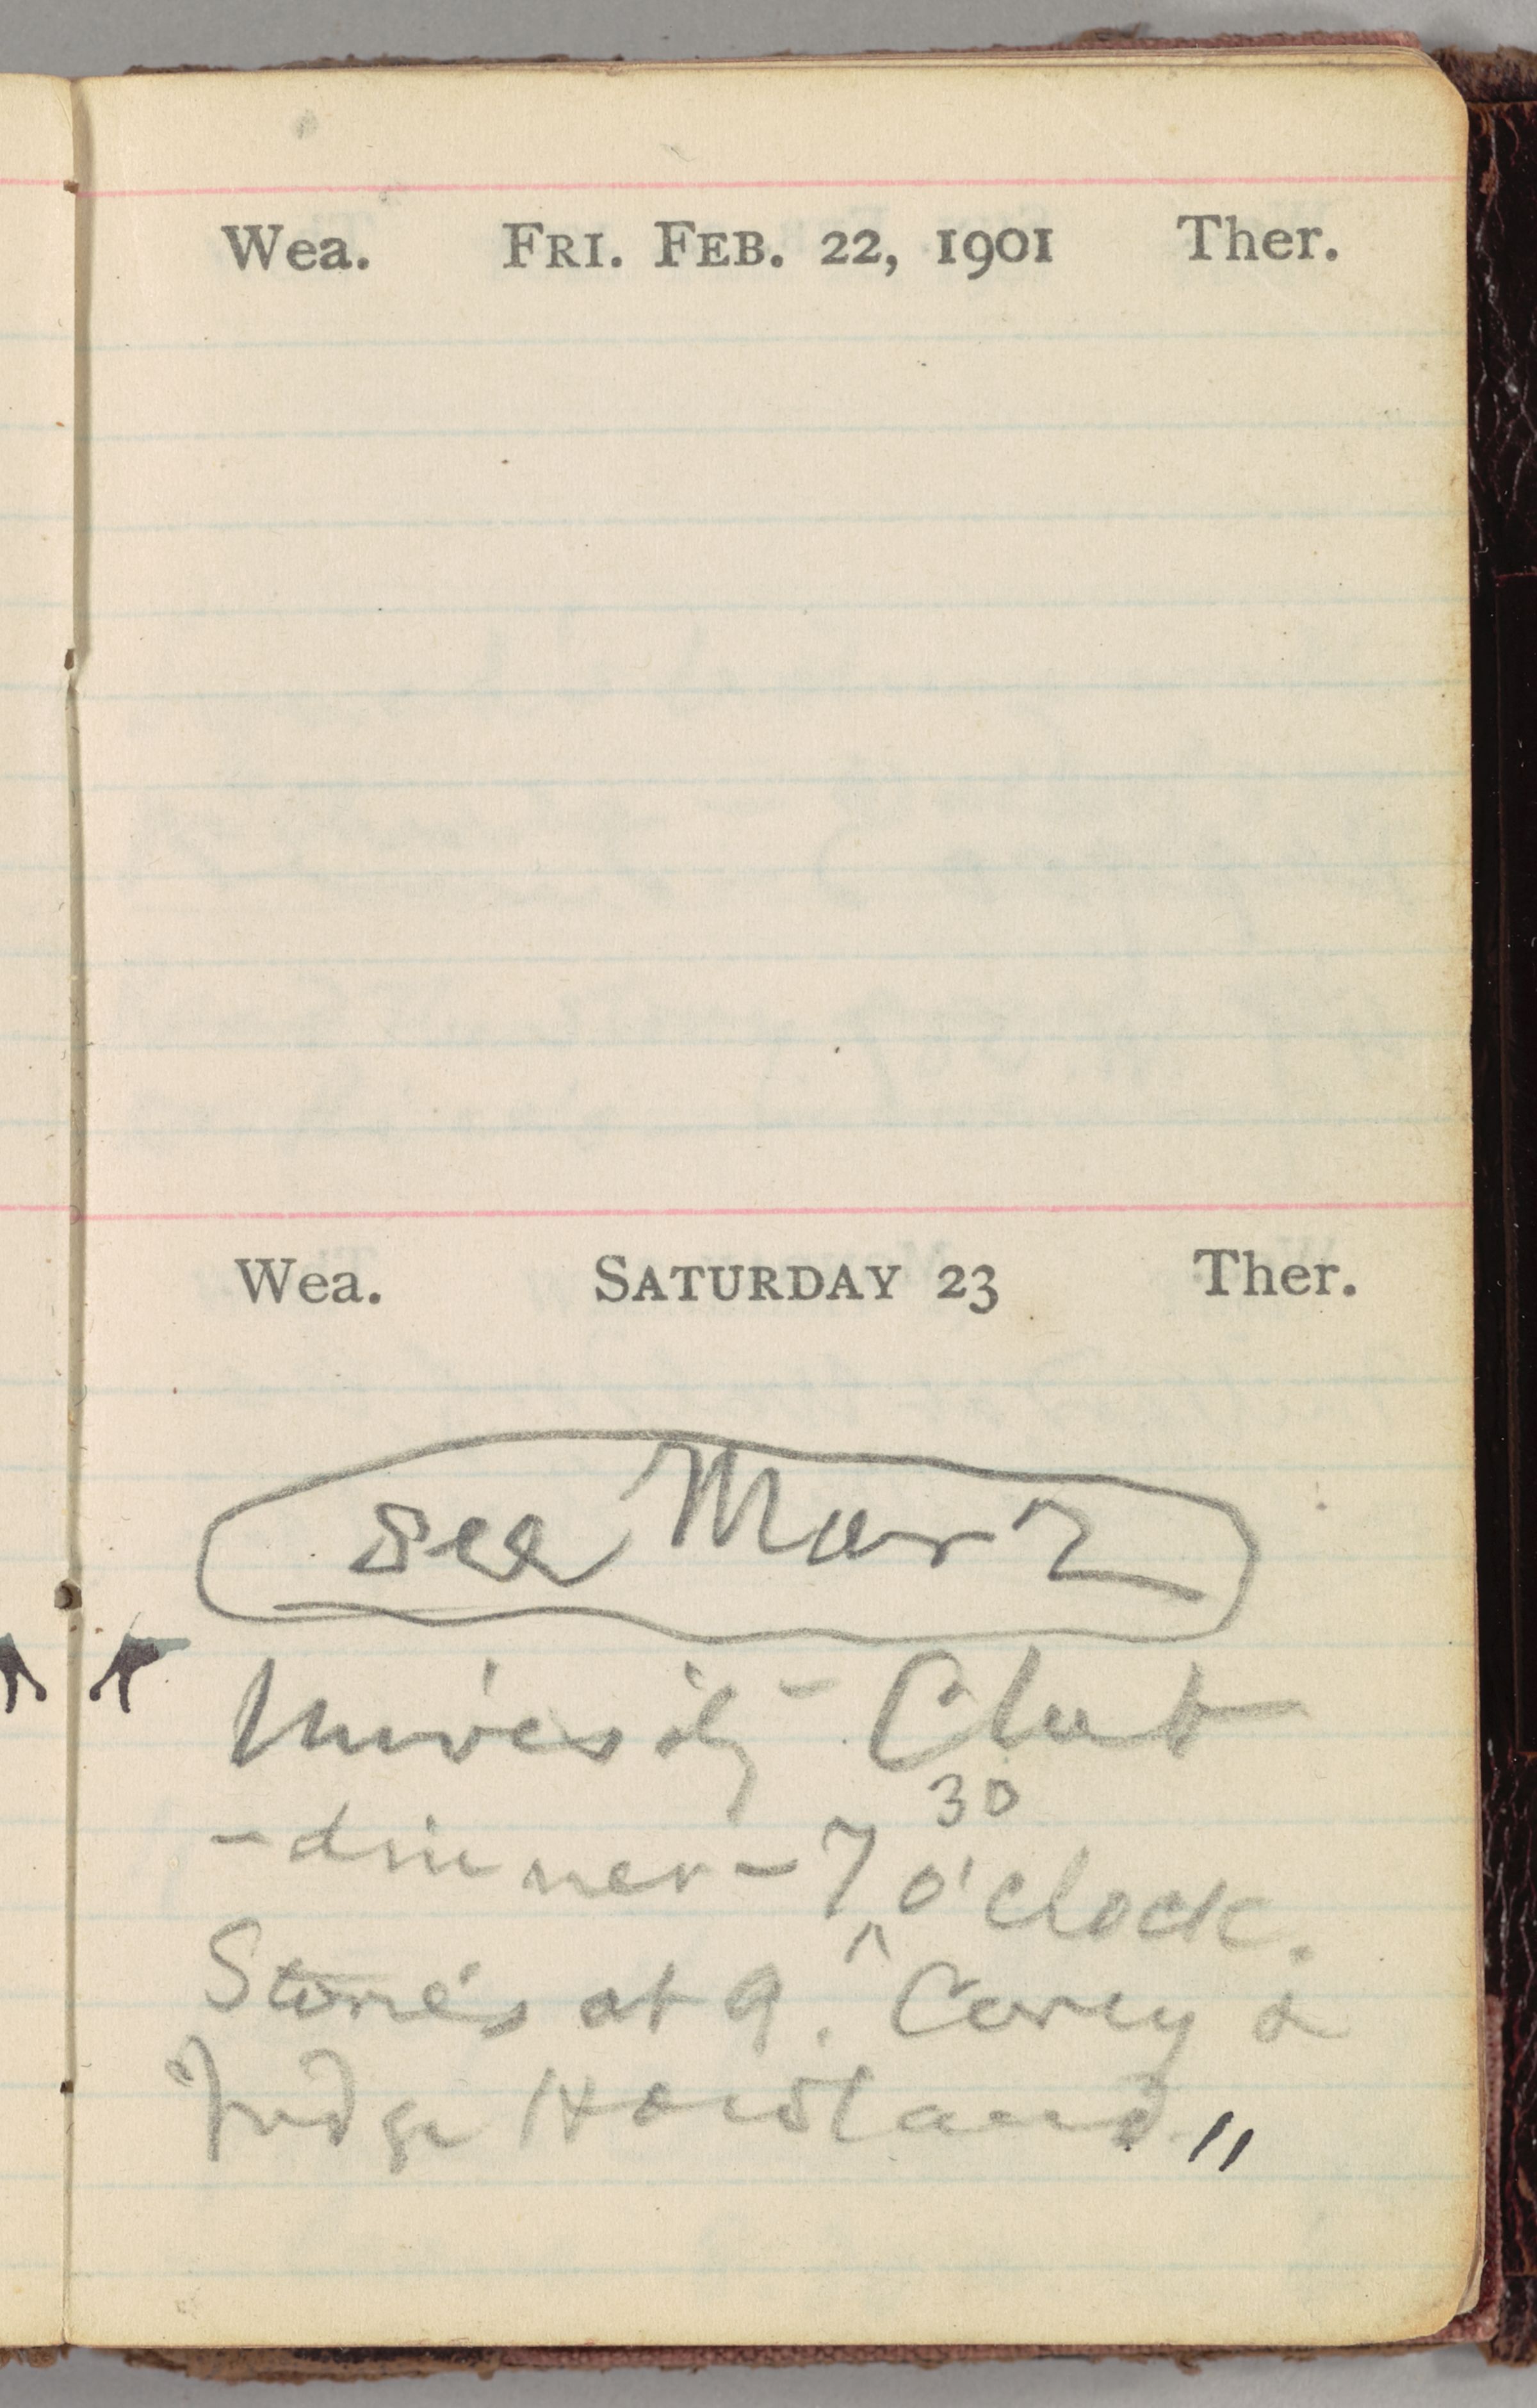 Wea. FRI. FEB. 22, 1901 Ther.
Wea. SATURDAY 23 Ther.
See Mar 2
University Club
30
- dinner - 7 ^ o'clock.
Stories at 9. Carey &
Judge Howland "